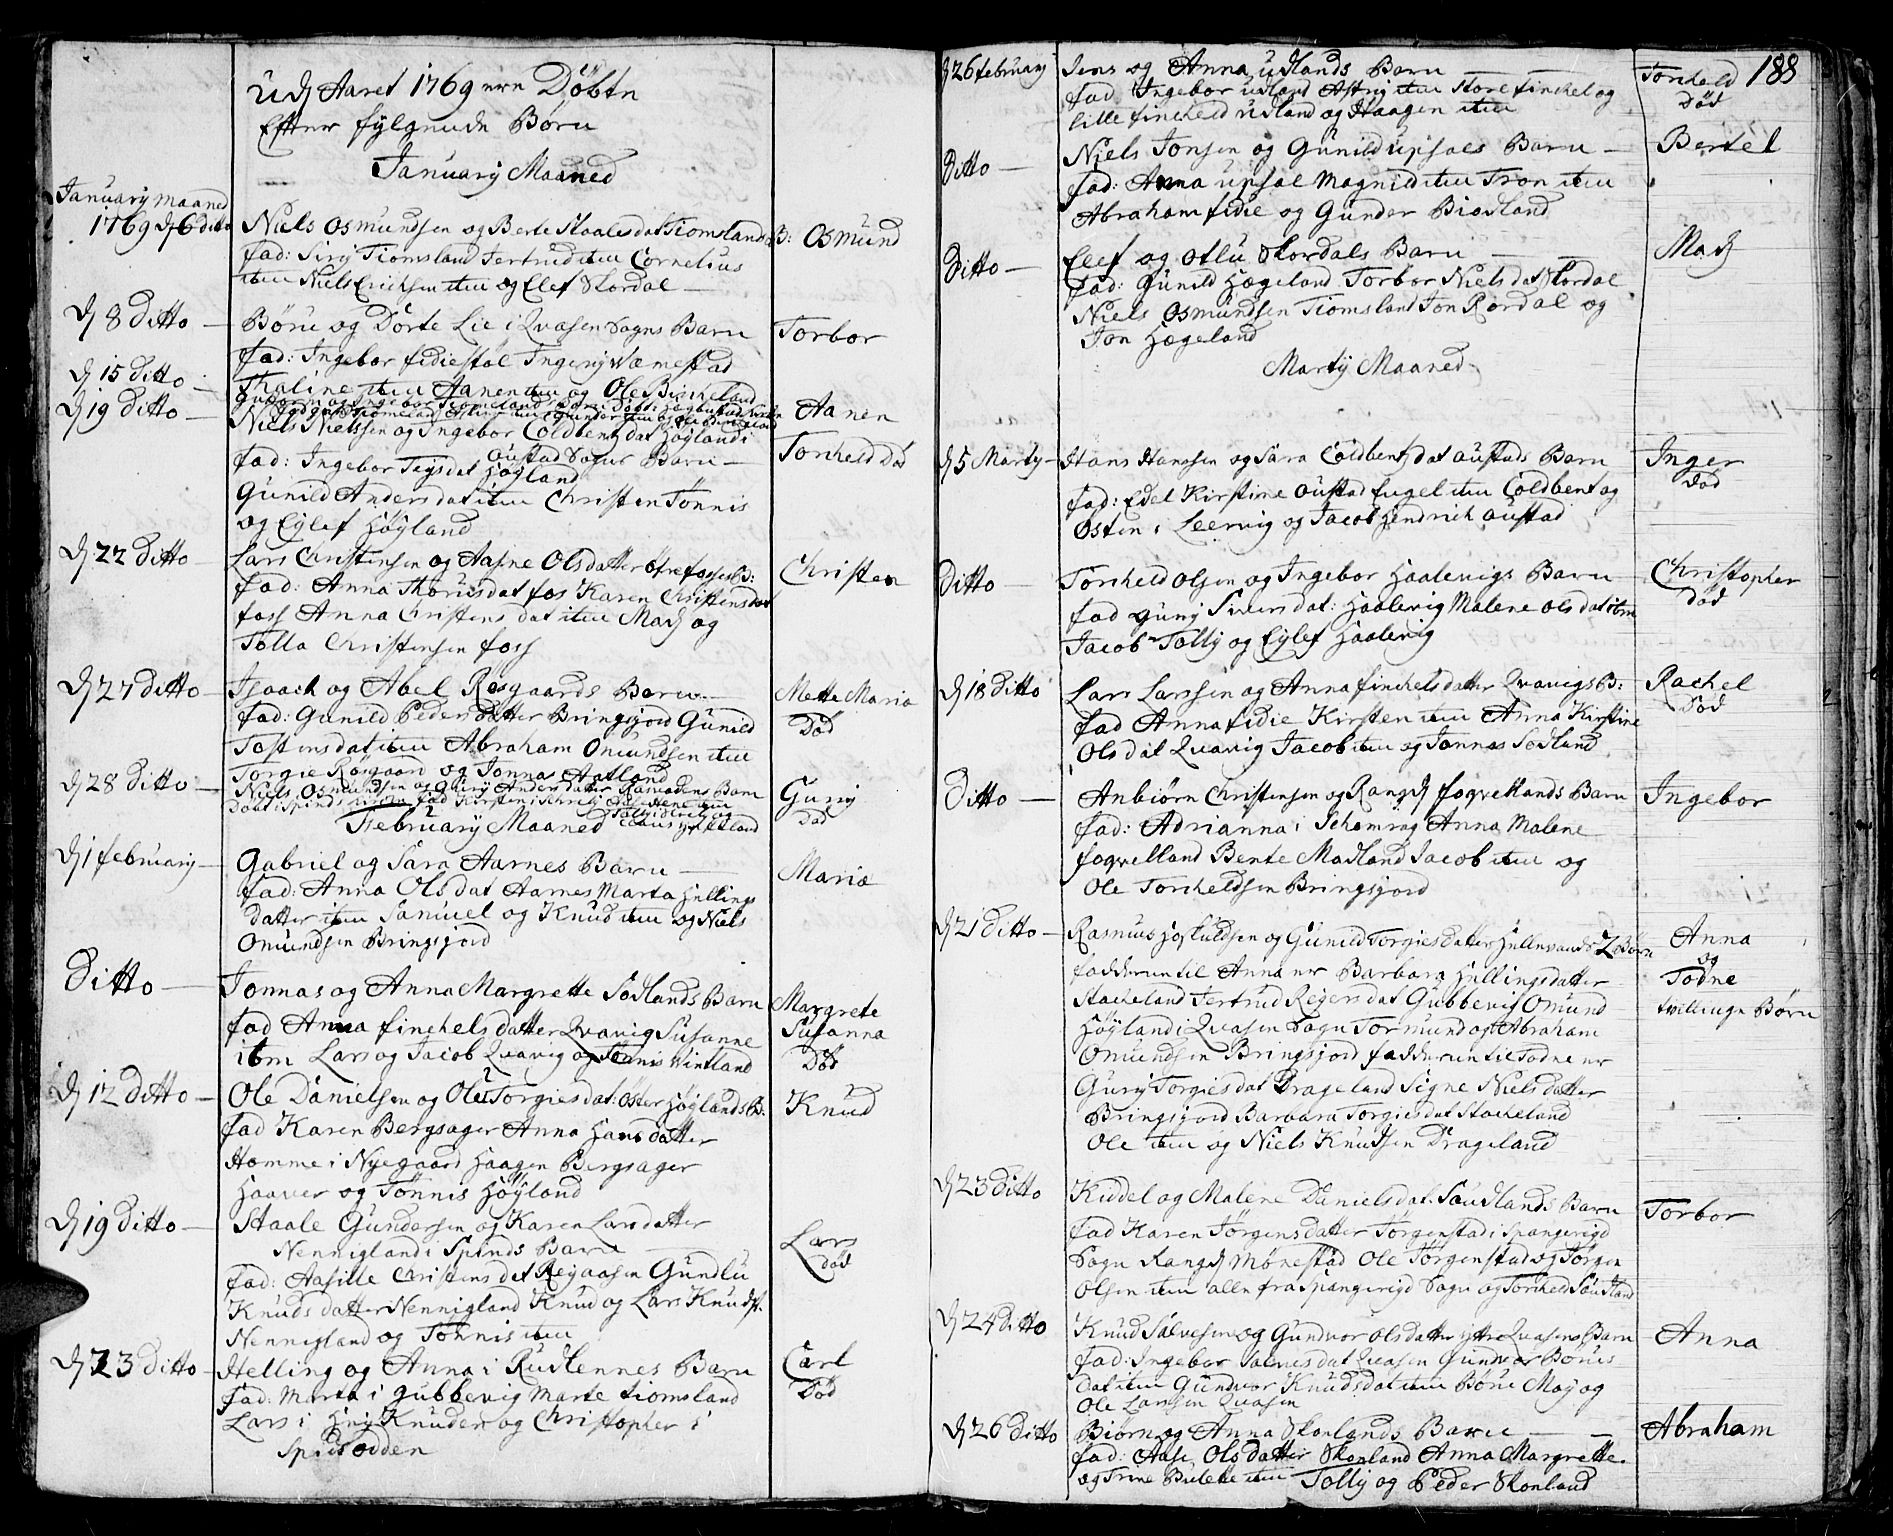 Udj Aaret 1769 ere Döbte
Efter fylgende Börn
January Maaned
January maaned
1769 dj 6 ditto
Niels Osmundsen og Berte Staalesdat Tiomslands B: Osmund
fad: Siry Tiomsland Jertrud item Cornelius
item Niels Erichsen item og Elef Skordal
dj 8 Ditto
Börie og Dorte Lie i Qvasen Sogns Barn
Torbor
fad: Ingebor fidiestöl Ingery Wæmestad
dj 15 Ditto
Thaline item Aanen item og Ole Birkeland
dj 19 Ditto
Aanen
Niels Nielssen og Ingebor Coldbentzdat Höyland i
Oustad Sogns Barn
Torkeld Död
fad: Ingebor Teysdat Höyland
Gunild Andersdat item Christen Tönnis
og Eylef Höyland
dj 22 Ditto
Lars Christensen og Aasne Olsdatter öfre fosses B:
Christen
fad: Anna Thorusdat fos Karen Christensdat
foss Anna Christensdat item Madz og
Tolla Christensen foss
dj 27 ditto
Isaach og Abel Rösgaards Barn
Mette Maria
Död
fad: Gunild Pedersdatter Bringsjord Gunild
Tostensdat item Abraham Omundsen item
Torgie Rösgaard og Jonnas Aatland
dj 28 ditto
Niels Osmundsen og Gury Andersdatter Barn
Gury
Död
February Maaned
dj 1 february
Gabriel og Sara Aarnes Barn
Maria
fad: Anna Olsdat Aarnes Marta Hellings
datter item Samuel og Knud item og Niels
Omundsen Bringsjord
Ditto
Jonnas og Anna Margrette Södlands Barn
Margrete
Susanna
Död
fad Anna finchelsdatter Qvavig Susanne
item Lars og Jacob Qvavig og Tönnis Vintland
dj 12 ditto
Ole Danielsen og Olu Torgiesdat: Öster Höylands B:
Knud
fad Karen Bergsager Anna Hansdatter
Homme i Nyegaard Haagen Bergsager
Haaver og Tönnis Höyland
dj 19 Ditto
Staale Gundersen og Karen Larsdatter
Nennigland i Spinds Barn
Lars
död
fad: Aasille Christensdat Reyaasen Gundlu
Knudsdatter Nennigland Knud og Lars Knudss.
Nennigland og Tönnis item
dj 23 ditto
Helling og Anna i Rudlennes Barn
Carl
Död
fad: Marta i Gubbevig Marte Tiomsland
Lars i Knuden og Christopher i
Spidsodden
188
dj 26 february
Jens og Anna Udlands Barn
Torkeld
Död
fad Ingebor Udland Astry item Store finchel og
lille fincheld Udland og Haagen item
Ditto
Niels Jonsen og Gunild Upsals Barn
Bertel
fad: Anna Upsal Magnild item Tron item
Abraham fidie og Gunder Biodland
Ditto
Elef og Otlu Skordals Barn
Madz
fad: Gunild Hægeland Torbor Nielsdat Skordal
Niels Osmundsen Tiomsland Jon Rördal og
Jon Hægeland
Marty Maaned
dj 5 Marty
Hans Hanssen og Sara Coldbentzdat Oustads Barn
Inger
Död
fad: Edel Kirstine Oustad Engel item Coldbent og
Osten i Leervig og Jacob Hendrich Oustad
Ditto
Torkeld Olsen og Ingebor Haalevigs Barn
Christopher
Död
fad Gury Siversdat: Haalevig Malene Olsdat item
Jacob Tolly og Eylef Haalevig
dj 18 ditto
Lars Larssen og Anna finchelsdatter Qvavigs B:
Rachel
Död
fad Anna fidie Kirsten item Anna Kirstine
Olsdat Qvavig Jacob item og Jonnas Södland
Ditto
Anbiörn Christensen og Rangdj foqvellands Barn
Ingebor
fad: Adrianna i Schomrag Anna Malene
foqvelland Bente Madland Jacob item og
Ole Torkeldsen Bringsjord
dj 21 ditto
Rasmus Hoskuldsen og Gunild Torgiesdatter Hellevands 2 Börn
Anna
og
Todne
tvillinge Börn
fadderne til Anna er Barbara Hellingsdatter
Stackeland Jertrud Regersdat Gubbevig Omund
Höyland i Qvasen Sogn Tormund og Abraham
Omundsen Bringsjord fadderne til Todne er
Gury Torgiesdat Drageland Signe Nielsdatter
Bringsjord Barbara Torgiesdat Stackeland
Ole item og Niels Knudsen Drageland
dj 23 ditto
Kiddel og Malene Danielsdat: Soudlands Barn
Torbor
fad Karen Jörgensdatter Jörgenstad i Spangerigd
Sogn Rangdj Mönestad Ole Jörgenstad og Jörgen
Olsen item alle fra Spangerigd Sogn og Torkeld Soudland
dj 24 ditto
Knud Salvesen og Gundvor Olsdatter ytre Qvasens Barn
Anna
fad: Ingebor Salvesdat Qvasen Gundvor Böries
dat item Gundvor Knudsdat item Börie Moy og
Ole Larssen Qvasen
dj 26 ditto
Biörn og Anna Skonlands Barn
Abraham
fad: Aase Olsdatter Skonland Anna Margrette
og Trine item Tolly og Peder Skonland